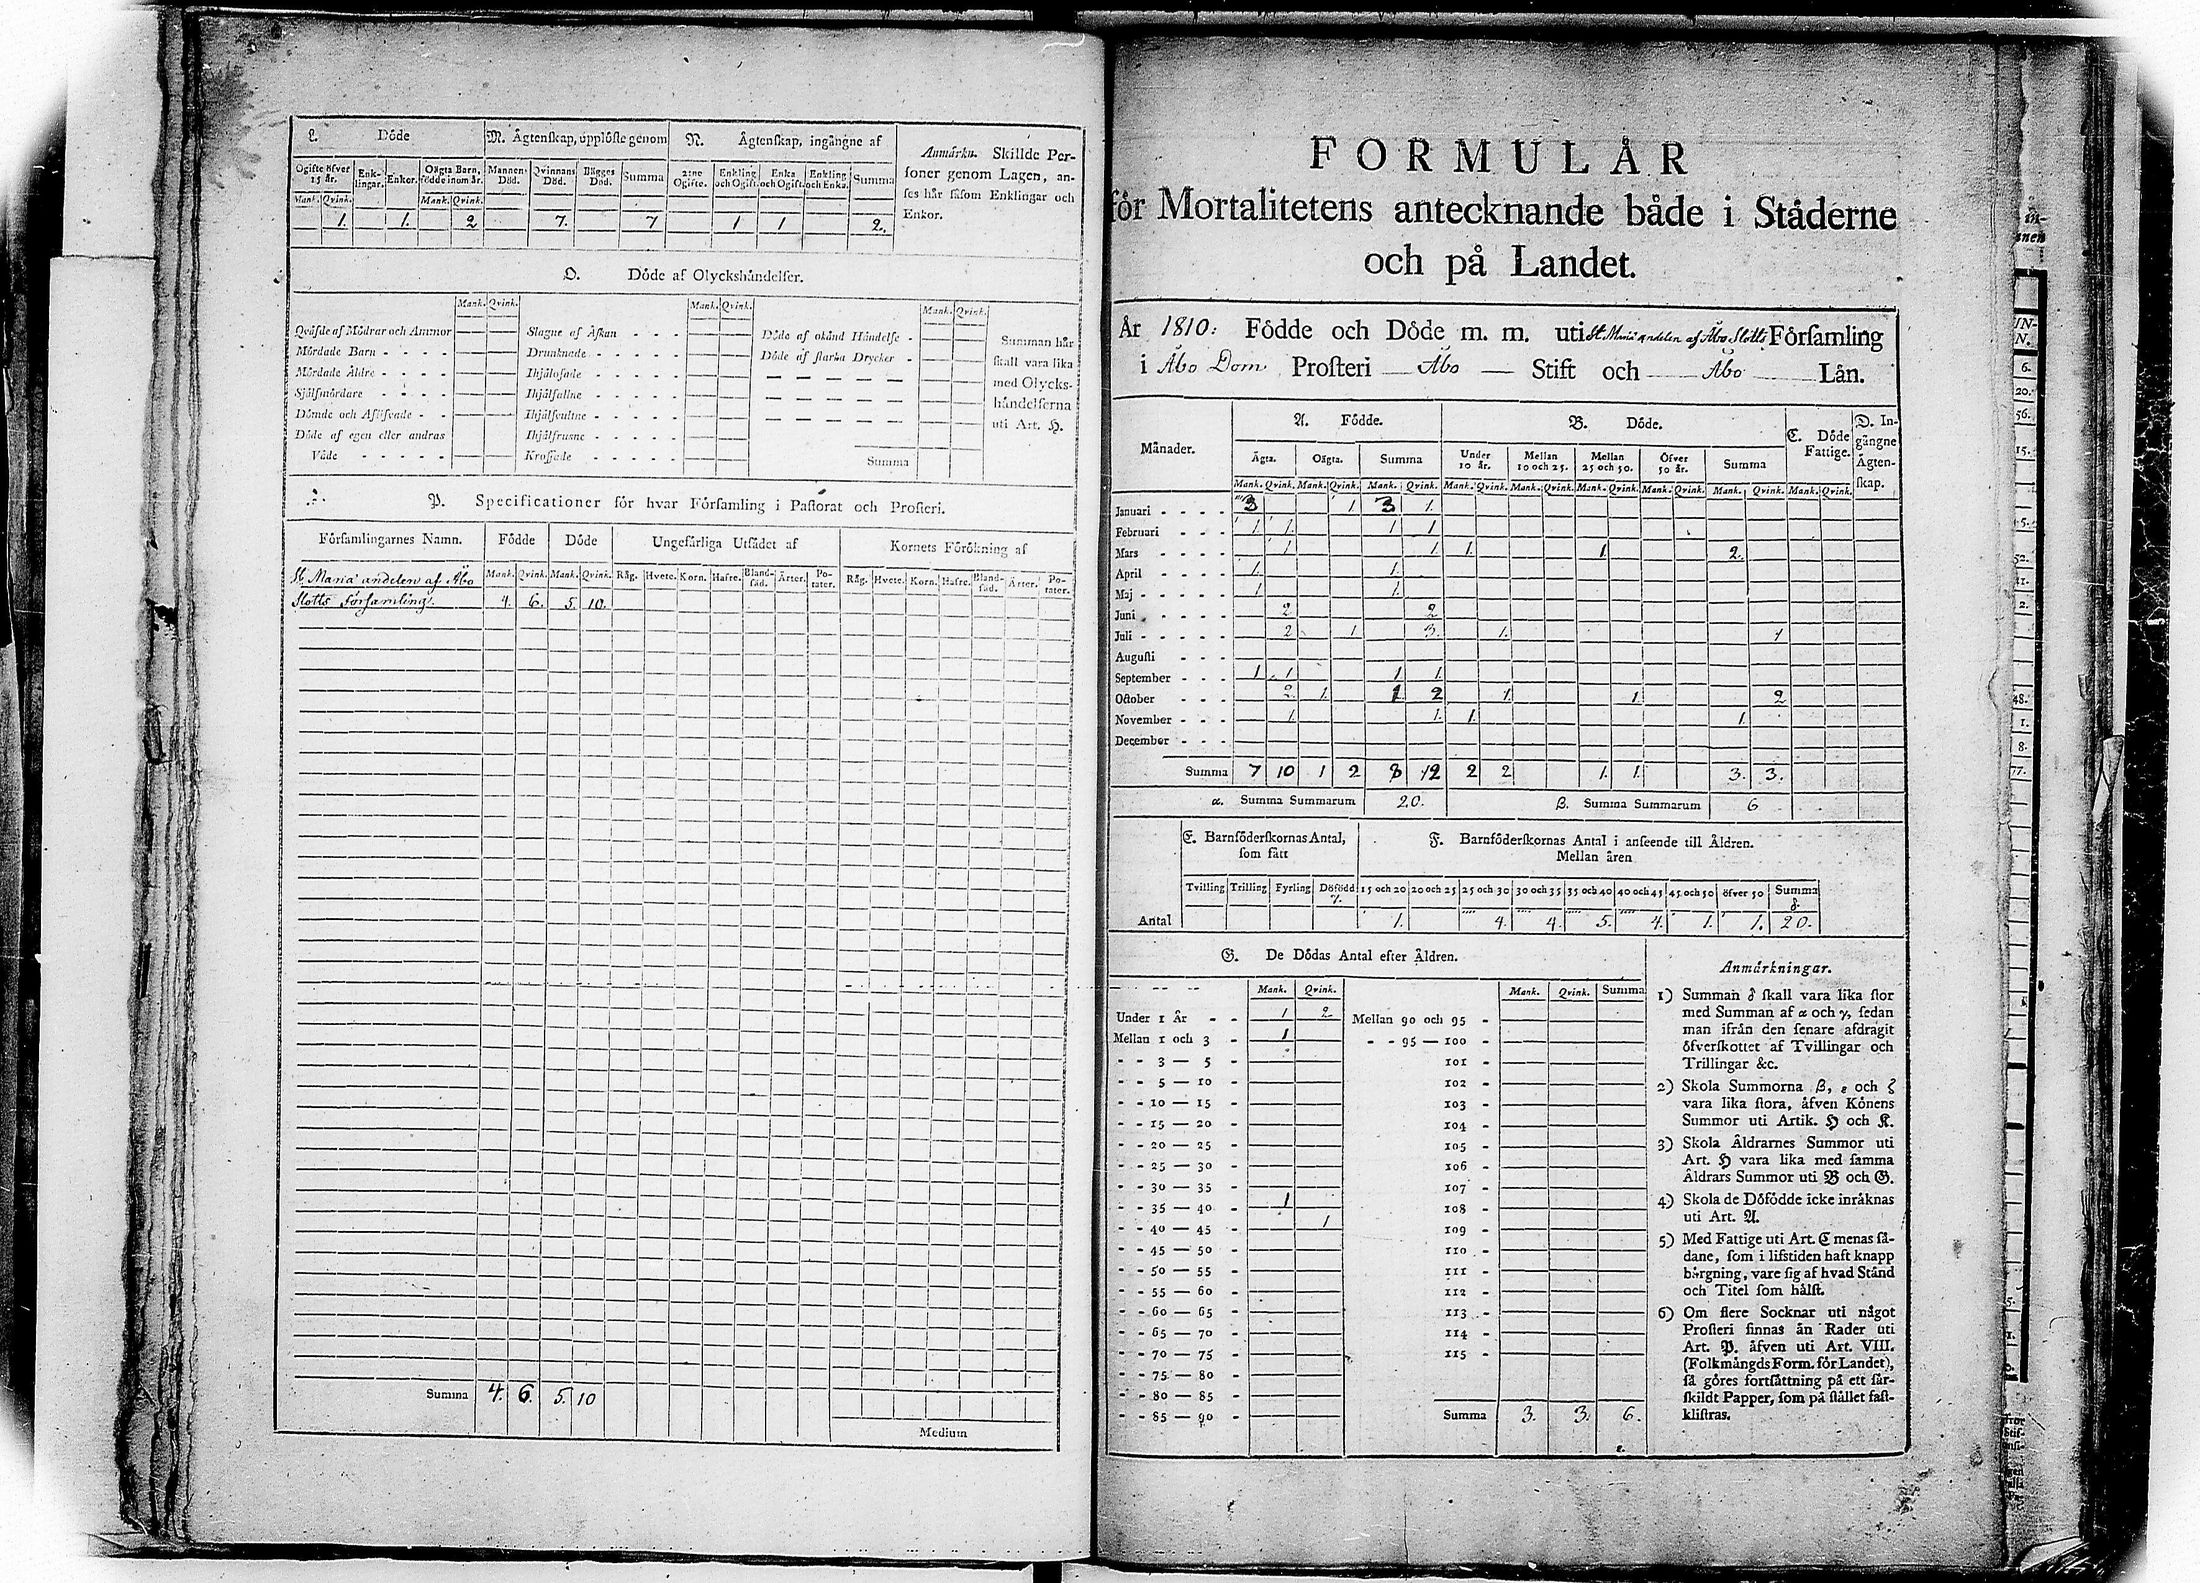 L. Döde M. Ägtenskap, upplöste genom N. Ägtenskap, ingångne af
Ogifte öfver 15 år. Enklingar. Enkor. Oägta Barn, födde inom år. Mannens Död. Qvinnans Död. Bägges Död. Summa 2:ne Ogifte. Enkling och Ogift. Enka och Ogift. Enkling och Enka. Summa
Mank. Qvink. Mank. Qvink.
1. 1. 2 7. 7 1 1 2.
Anmärkn. Skillde Per-
soner genom Lagen, an-
ses här såsom Enklingar och
Enkor.
O. Döde af Olyckshändelser.
Mank. Qvink. Mank. Qvink. Mank. Qvink.
Qväfde af Mödrar och Ammor Slagne af Åskan - - - Döde af okänd Händelse -
Mördade Barn - - - - Drunknade - - - - Döde af starka Drycker -
Mördade Äldre - - - - Ihjälosade - - - -
Självmördare - - - - Ihjälfallne - - - -
Dömde och Aflifvade - - Ihjälsvultne - - - -
Döde af egen eller andras Ihjälfrusne - - - -
Våde - - - - - Krossade - - - - - Summa
Summan här
skall vara lika
med Olycks-
händelserna
uti Art. H.
P. Specificationer för hvar Församling i Pastorat och Prosteri.
Församlingarnes Namn. Födde Döde Ungefärliga Utsädet af Kornets Förökning af
Mank. Qvink. Mank. Qvink. Råg. Hvete. Korn. Hafre. Blandsäd. Ärter. Potater. Råg. Hvete. Korn. Hafre. Blandsäd. Ärter. Potater.
St. Mariä andelen af Åbo
Slotts församling. 4. 6. 5. 10.
Summa 4. 6. 5. 10
Medium
FORMULÄR
för Mortalitetens antecknande både i Städerne
och på Landet.
År 1810: Födde och Döde m. m. uti St. Mariä andelen af Åbo Slotts Församling
i Åbo Dom Prosteri Åbo Stift och Åbo Län.
Månader. A. Födde. B. Döde. C. Döde Fattige. D. Ingångne Ägtenskap.
Ägta. Oägta. Summa Under 10 år. Mellan 10 och 25. Mellan 25 och 50. Öfver 50 år. Summa
Mank. Qvink. Mank. Qvink. Mank. Qvink. Mank. Qvink. Mank. Qvink. Mank. Qvink. Mank. Qvink. Mank. Qvink. Mank. Qvink.
Januari - - - - 3 1 3 1.
Februari - - - 1 1. 1 1
Mars - - - - 1 1 1. 1. 2.
April - - - - 1. 1.
Maj - - - - - 1 1.
Juni - - - - 2 2
Juli - - - - - 2 1 3. 1. 1
Augusti - - -
September - - - 1 1 1 1.
October - - - 2 1. 1 2 1. 1. 2
November - - - 1. 1. 1. 1.
December - - -
Summa 7 10 1 2 8 12 2 2 1. 1. 3. 3.
α. Summa Summarum 20. β. Summa Summarum 6
E. Barnföderskornas Antal, som fått F. Barnföderskornas Antal i anseende till Åldren.
Mellan åren
Tvilling Trilling Fyrling Döfödd γ. 15 och 20 20 och 25 25 och 30 30 och 35 35 och 40 40 och 45 45 och 50 öfver 50 Summa δ.
Antal 1. 4. 4. 5. 4. 1. 1. 20.
G. De Dödas Antal efter Åldren.
Mank. Qvink. Mank. Qvink. Summa
Under 1 År - - 1 2 Mellan 90 och 95 -
Mellan 1 och 3 - 1 - - 95 — 100 -
- - 3 — 5 - 101 -
- - 5 — 10 - 102 -
- - 10 — 15 - 103 -
- - 15 — 20 - 104 -
- - 20 — 25 - 105 -
- - 25 — 30 - 106 -
- - 30 — 35 - 107 -
- - 35 — 40 - 1 108 -
- - 40 — 45 - 1 109 -
- - 45 — 50 - 110 -
- - 50 — 55 - 111 -
- - 55 — 60 - 112 -
- - 60 — 65 - 113 -
- - 65 — 70 - 114 -
- - 70 — 75 - 115 -
- - 75 — 80 -
- - 80 — 85 -
- - 85 — 90 - Summa 3. 3. 6.
Anmärkningar.
1) Summan δ skall vara lika stor
med Summan af α och γ, sedan
man ifrån den senare afdragit
öfverskottet af Tvillingar och
Trillingar &c.
2) Skola Summorna β, ε och ζ
vara lika stora, äfven Könens
Summor uti Artik. H och K.
3) Skola Åldrarnes Summor uti
Art. H vara lika med samma
Åldrars Summor uti B och G.
4) Skola de Döfödde icke inräknas
uti Art. A.
5) Med Fattige uti Art. C menas så-
dane, som i lifstiden haft knapp
bärgning, vare sig af hvad Stånd
och Titel som hälst.
6) Om flere Socknar uti något
Prosteri finnas än Rader uti
Art. P. äfven uti Art. VIII.
(Folkmängds Form. för Landet),
så göres fortsättning på ett sär-
skildt Papper, som på stället fast-
klistras.